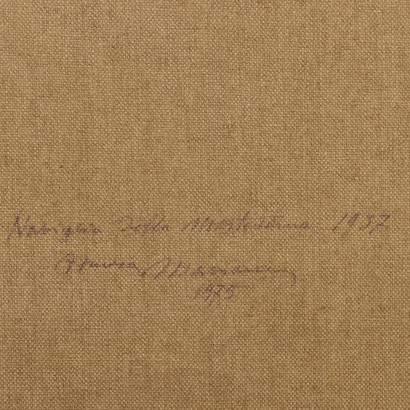 Naviglio della Martesana 1937
1975